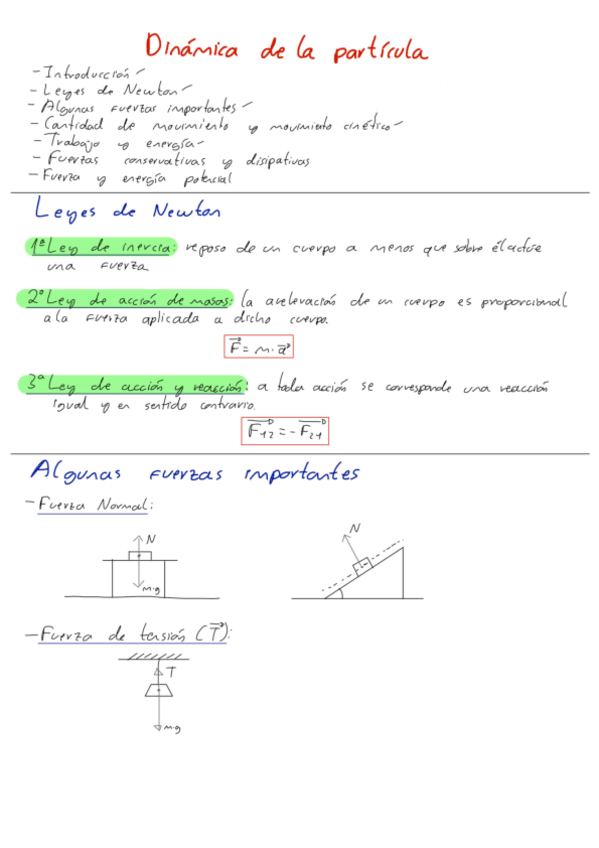 Dinámica de la partícula
- Introducción
- Leyes de Newton
- Algunas fuerzas importantes
- Cantidad de movimiento y movimiento cinético
- Trabajo y energía
- Fuerzas conservativas y disipativas
- Fuerza y energía potencial
Leyes de Newton
1ª Ley de inercia: reposo de un cuerpo a menos que sobre él actúe
una fuerza
2ª Ley de acción de masas: la aceleración de un cuerpo es proporcional
a la fuerza aplicada a dicho cuerpo.
F = m·a
3ª Ley de acción y reacción: a toda acción se corresponde una reacción
igual y en sentido contrario.
F12 = -F21
Algunas fuerzas importantes
- Fuerza Normal:
N
N
m·g
- Fuerza de tensión (T):
T
m·g